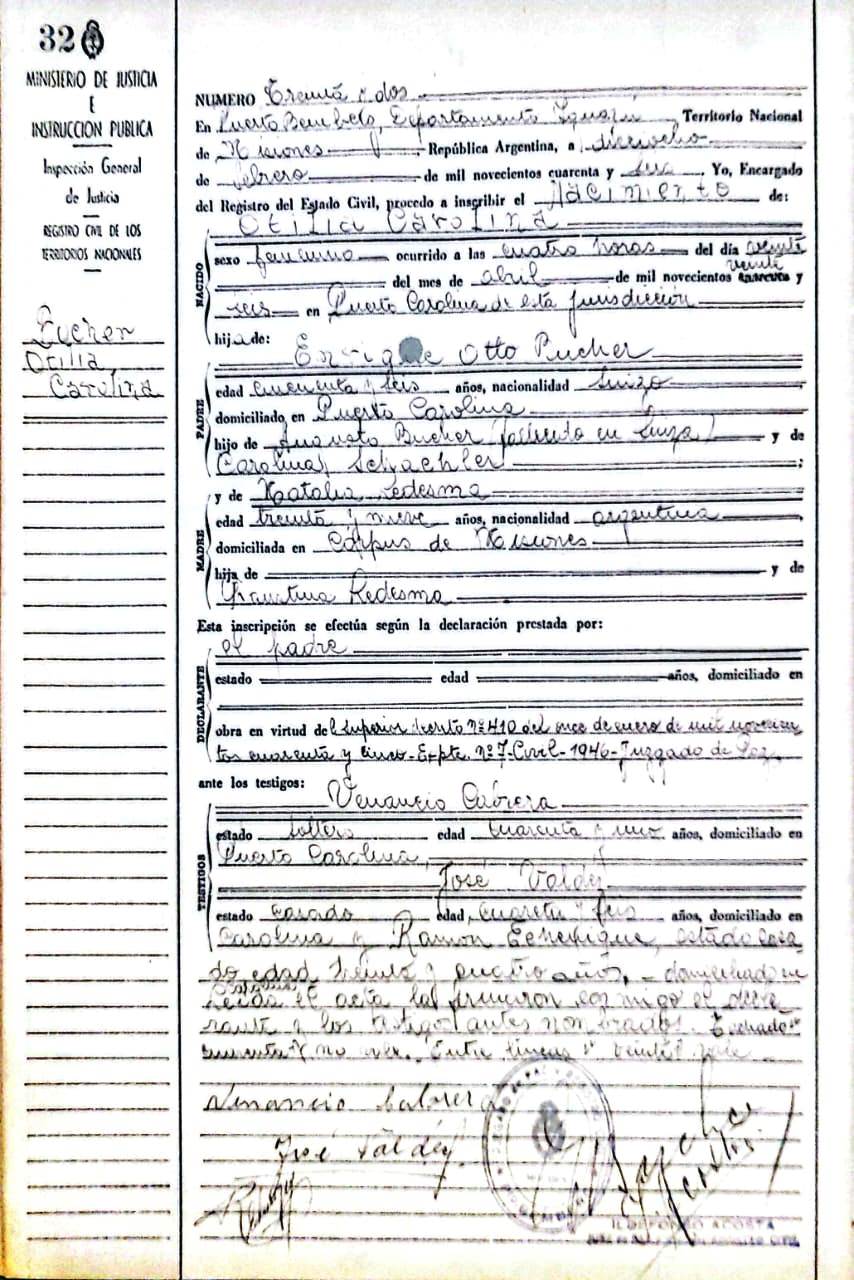 32
MINISTERIO DE JUSTICIA
E
INSTRUCCION PUBLICA
Inspección General
de Justicia
REGISTRO CIVIL DE LOS
TERRITORIOS NACIONALES
Otilia
Carolina
NUMERO Treinta y dos
En Puerto Bemberg, Departamento Iguazú, Territorio Nacional
de Misiones República Argentina, a dieciocho
de febrero de mil novecientos cuarenta y seis Yo, Encargado
del Registro del Estado Civil, procedo a inscribir el Nacimiento de:
Otilia Carolina
NACIDO
sexo femenino ocurrido a las cuatro horas del día veinte
veinte
del mes de abril de mil novecientos cuarenta y
seis en Puerto Carolina de esta jurisdicción
hija de:
Enrique Otto Pucher
PADRE
edad cincuenta y seis años, nacionalidad Suizo
domiciliado en Puerto Carolina
hijo de Augusto Bucher (fallecido en Suiza) y de
Carolina Schaehler ;
MADRE
y de Natalia Ledesma
edad treinta y nueve años, nacionalidad argentina
domiciliada en Corpus de Misiones
hija de y de
Faustina Ledesma
Esta inscripción se efectúa según la declaración prestada por:
el padre
DECLARANTE
estado edad años, domiciliado en
obra en virtud del Superior decreto nº 410 del once de enero de mil novecien
tos cuarenta y cinco - Expte. nº 7 - Civil - 1946 - Juzgado de Paz.
ante los testigos:
Venancio Cabrera
TESTIGOS
estado soltero edad cuarenta y uno años, domiciliado en
Puerto Carolina,
José Valdéz
estado casado edad cuareta y seis años, domiciliado en
Carolina y Ramon Echerique, estado casa
do edad treinta y cuatro años, - domiciliado en
Carolina
Leida el acta la firmaron conmigo el decla
rante y los testigos antes nombrados. Techado "
cuarenta y no vale. Entre lineas " veinte" vale
Venancio Cabrera
José Valdéz
ILDEFONSO ACOSTA